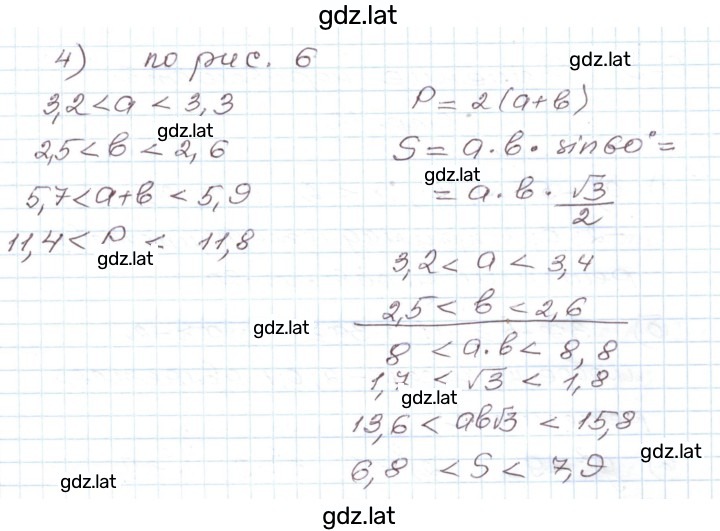 gdz.lat
4) по рис. 6
gdz.lat
3,2 < a < 3,3
gdz.lat
2,5 < b < 2,6
5,7 < a+b < 5,9
11,4 < P < 11,8
gdz.lat
P = 2(a+b)
S = a·b· sin60° =
gdz.lat
= a·b· √3/2
3,2 < a < 3,4
2,5 < b < 2,6
gdz.lat
8 < a·b < 8,8
1,7 < √3 < 1,8
gdz.lat
13,6 < ab√3 < 15,8
gdz.lat
6,8 < S < 7,9
gdz.lat
gdz.lat